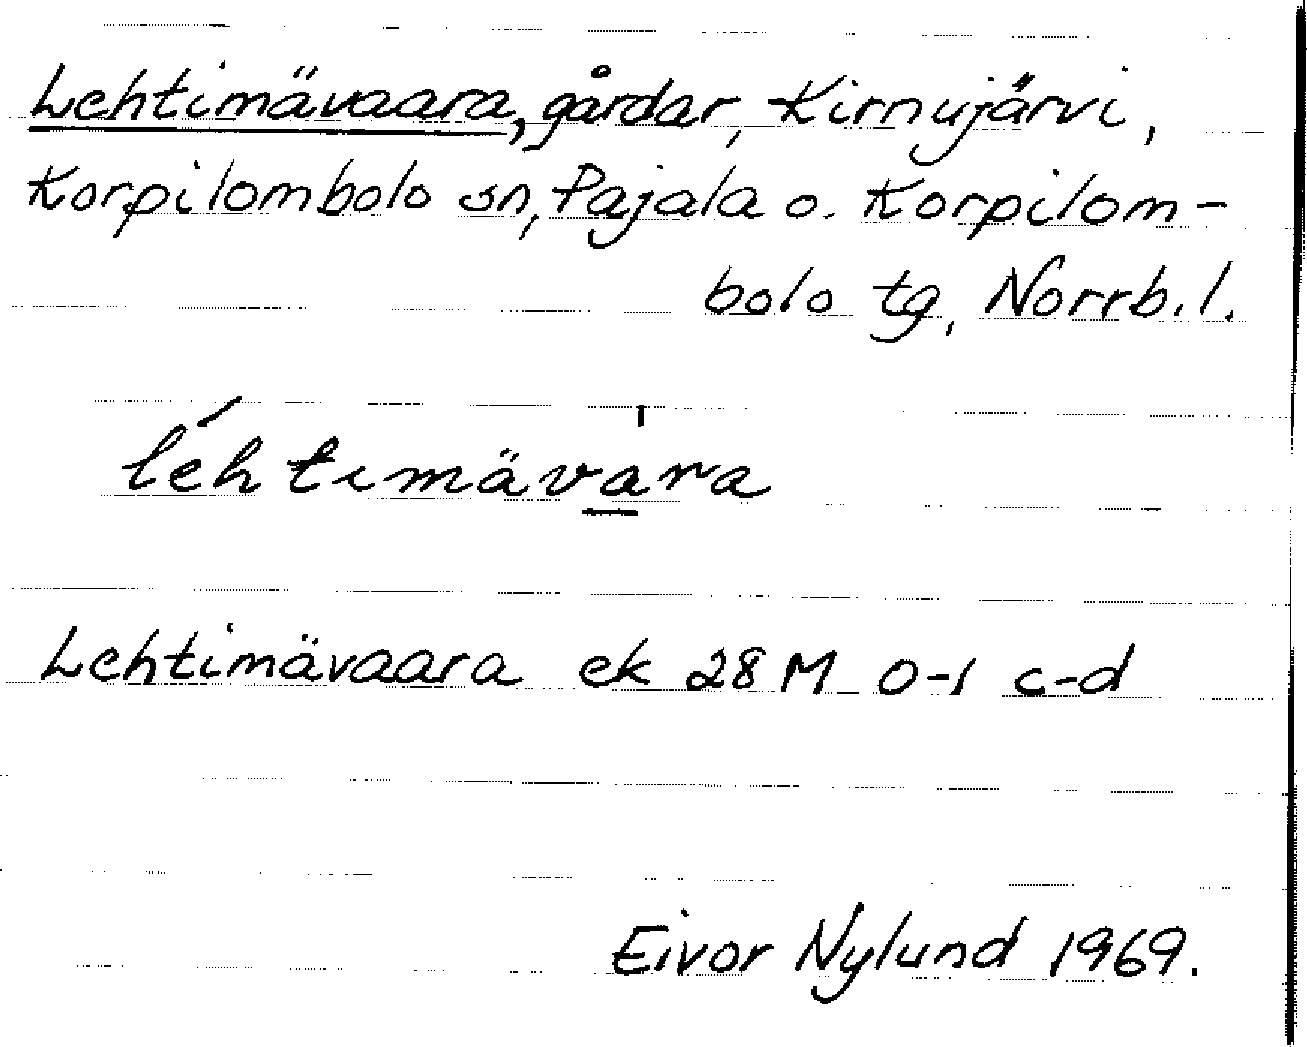 Lehtimävaara, gårdar, Kirnujärvi,
Korpilombolo sn, Pajala o. Korpilom-
bolo tg, Norrb.l.
léhtimäva̲ˈra
Lehtimävaara ek 28 M 0-1 c-d
Eivor Nylund 1969.